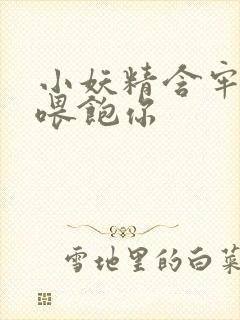 小妖精含牢
喂飽你
雪地里的白菜